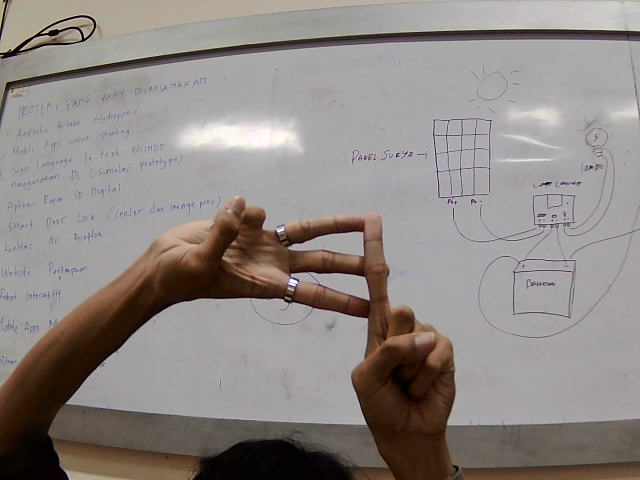 PROJEK YANG AKAN DILAKSANAKAN
Aesthetic Portable Hydroponic
Mobile Apps untuk Stunting
Sign Language to text BISINDO
Menggunakan DL (Simulasi prototype)
Aplikasi Rapor SD Digital
Smart Door Lock (sensor dan image proc)
Kualitas Air
Website
Robot Interaktif
Mobile Apps
PANEL SURYA →
LAMPU
P+
P-
BATERAI